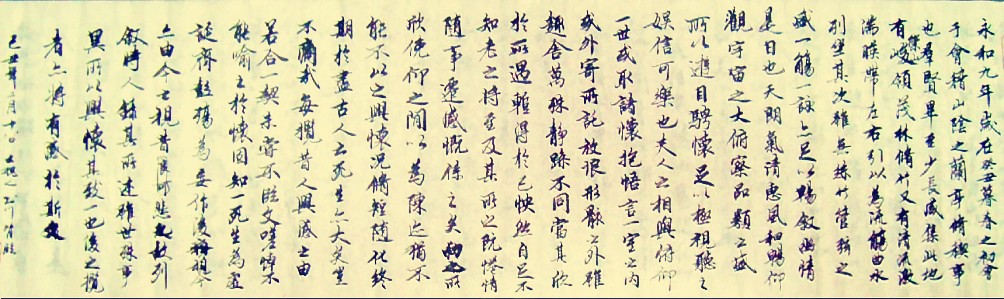 永和九年歲在癸丑暮春之初會
于會稽山陰之蘭亭脩稧事
也羣賢畢至少長咸集此地
有峻領茂林脩竹又有清流激
湍暎帶左右引以為流觴曲水
列坐其次雖無絲竹管絃之
盛一觴一詠亦足以暢叙幽情
是日也天朗氣清惠風和暢仰
觀宇宙之大俯察品類之盛
所以遊目騁懷足以極視聽之
娛信可樂也夫人之相與俯仰
一世或取諸懷抱悟言一室之內
或因寄所託放浪形骸之外雖
趣舍萬殊靜躁不同當其欣
於所遇蹔得於己怏然自足不
知老之將至及其所之既惓情
隨事遷感慨係之矣向之所
欣俛仰之間以為陳迹猶不
能不以之興懷況脩短隨化終
期於盡古人云死生亦大矣豈
不痛哉每攬昔人興感之由
若合一契未嘗不臨文嗟悼不
能喻之於懷固知一死生為虛
誕齊彭殤為妄作後之視今
亦由今之視昔悲夫故列
叙時人錄其所述雖世殊事
異所以興懷其致一也後之攬
者亦將有感於斯文
己丑年